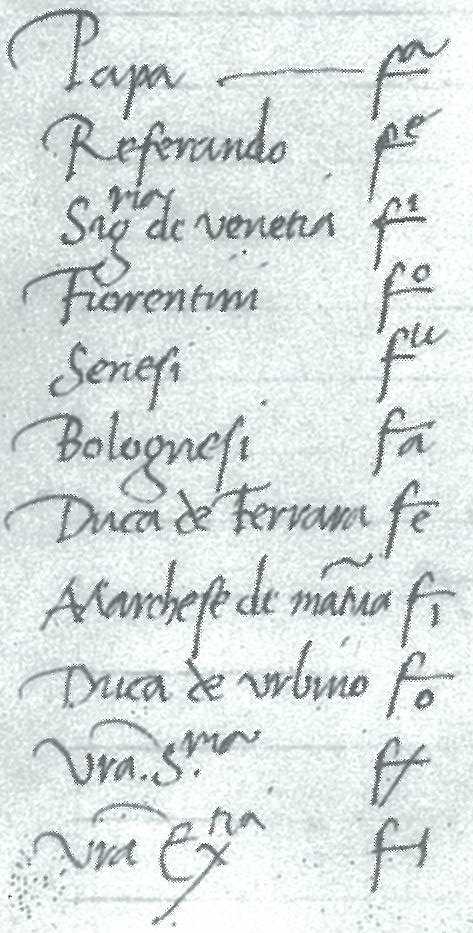 Papa — fᵃ
Referando fᵉ
Sigʳⁱᵃ de venetia fⁱ
Fiorentini fᵒ
Senesi fᵘ
Bolognesi fa
Duca de Ferrara fe
Marchese de mãtua fi
Duca de urbino fo
Vra. S.ʳⁱᵃ
Vra Exᵗⁱᵃ